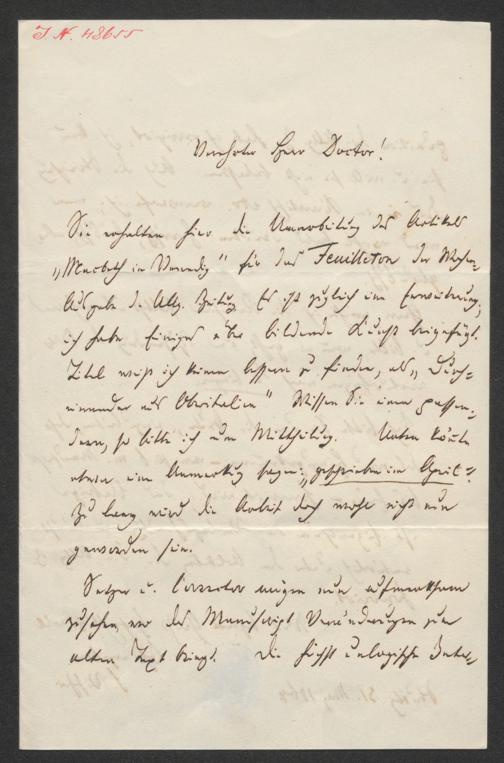 J. N. 48655
Verehrter Herr Doctor!
Sie erhalten hier die Umarbeitung des Artikels
„Macbeth in Venedig" für das Feuilleton der Wochen-
Ausgabe d. Allg. Zeitung. Es ist zugleich eine Erweiterung,
ich habe Einiges über bildende Kunst beigefügt.
Titel weiß ich keinen bessern zu finden, als „Durch-
einander aus Oberitalien" Wissen Sie einen passen-
dern, so bitte ich um Mittheilung. Unten könnte
etwa eine Anmerkung sagen: „geschrieben im April"
Zu lang wird die Arbeit doch wohl nicht nun
geworden sein.
Setzer u. Corrector mögen nun aufmerksam
zusehen, wo das Manuscript Veränderungen zum
alten Text bringt. Die höchst unlogische Inter-